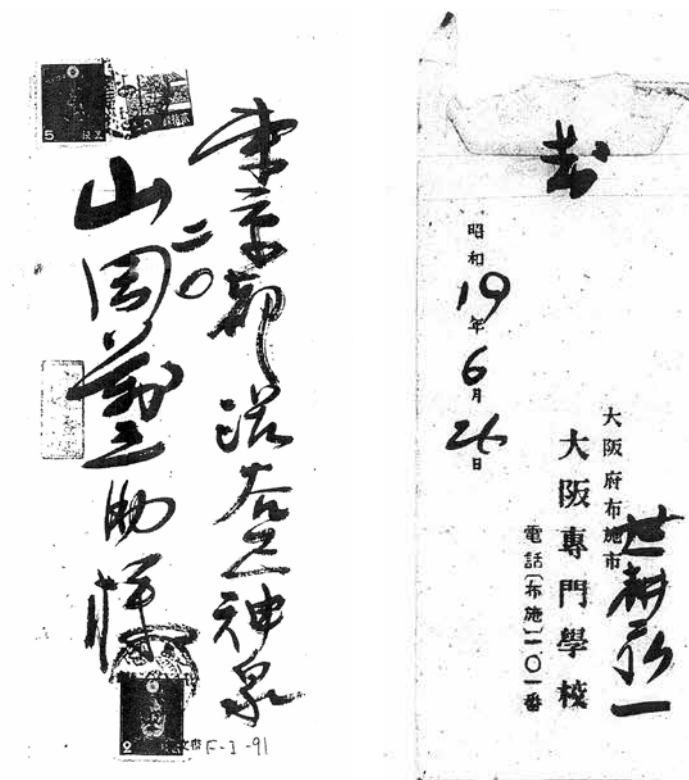 東京都渋谷区神泉
二〇
山岡萬之助様
5
2
F-I-91
封
昭和19年6月26日
大阪府布施市
大阪專門學校
電話〔布施〕一〇一番
世耕弘一